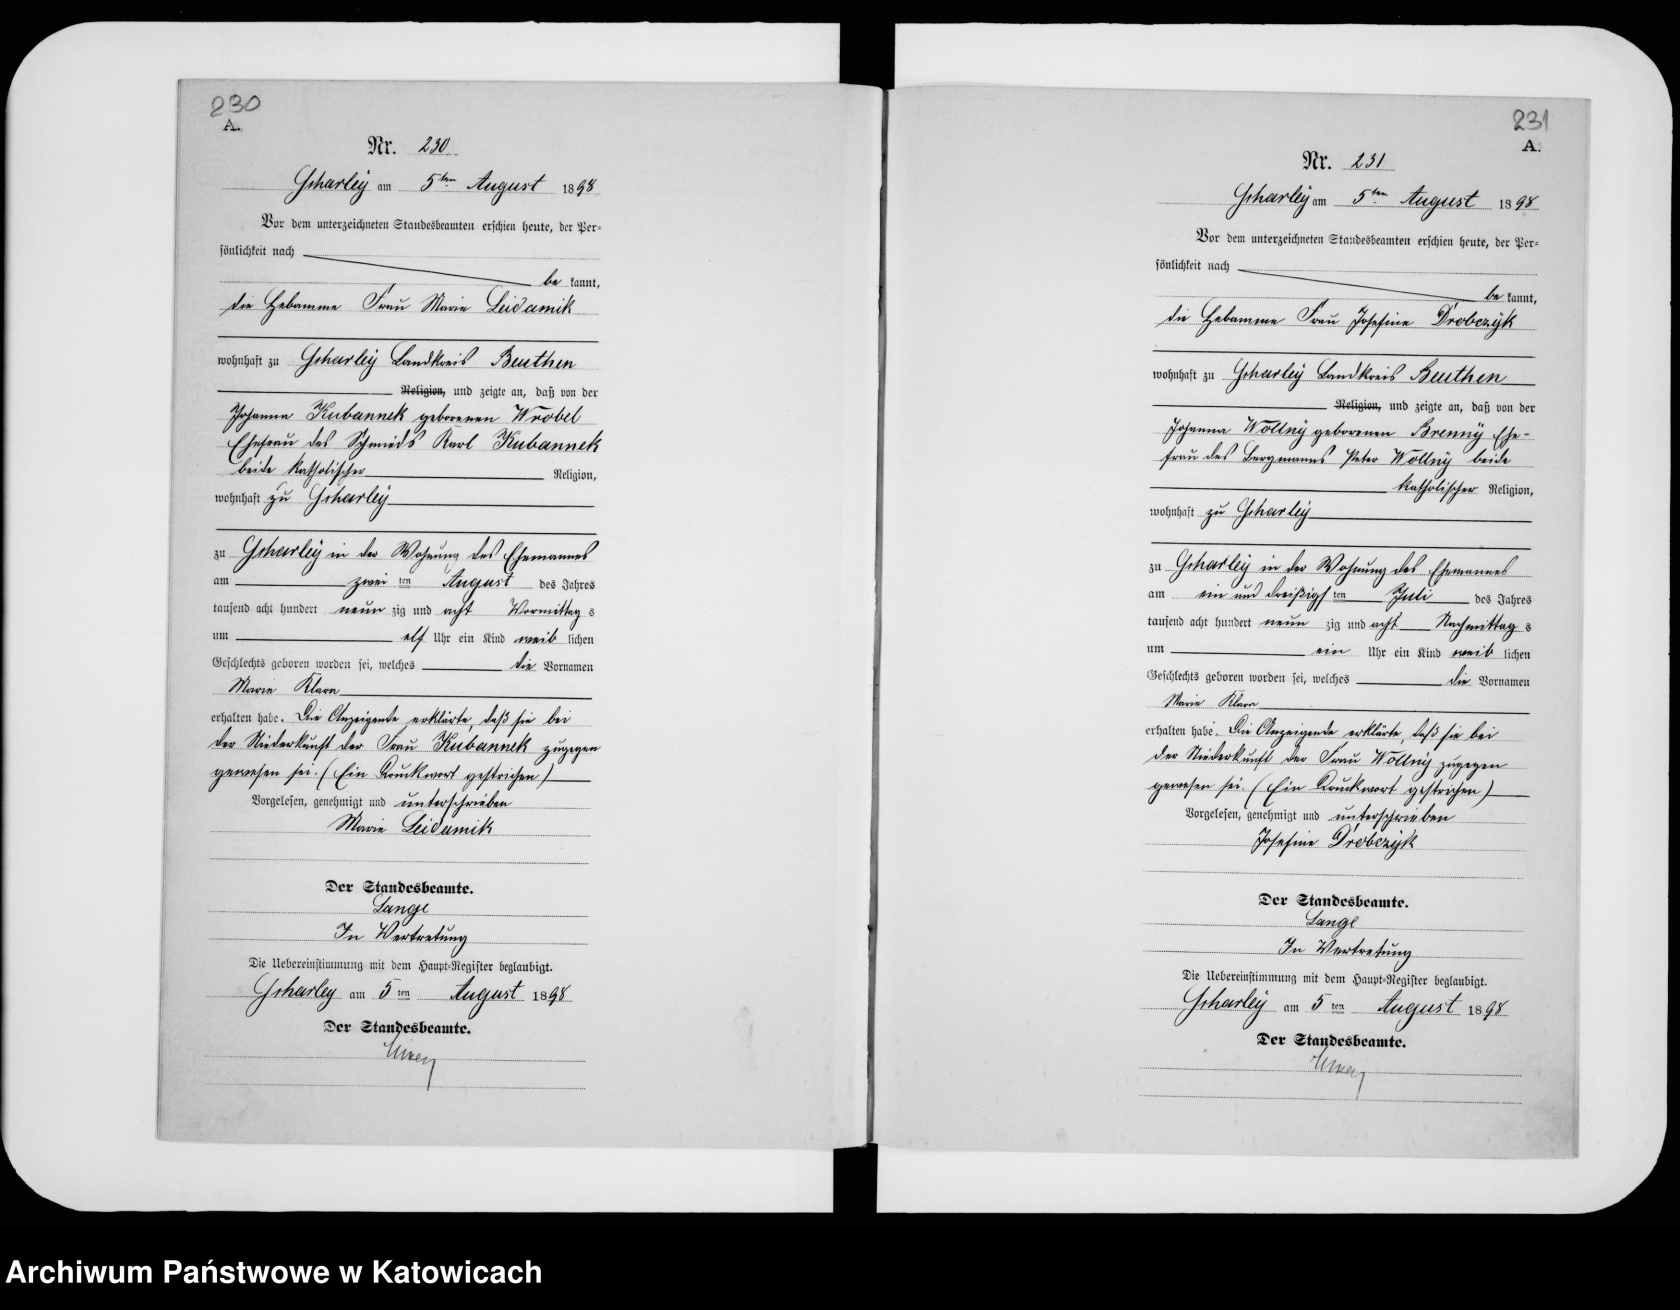 230
A.
Nr. 230
Scharley am 5ten August 1898
Vor dem unterzeichneten Standesbeamten erschien heute, der Per-
sönlichkeit nach
be kannt,
die Hebamme Frau Marie Leidamik
wohnhaft zu Scharley Landkreis Beuthen
Religion, und zeigte an, daß von der
Johanna Kubannek geborenen Wrobel
Ehefrau des Schmieds Karl Kubannek
beide katholischer Religion,
wohnhaft zu Scharley
zu Scharley in der Wohnung des Ehemannes
am zwei ten August des Jahres
tausend acht hundert neun zig und acht Vormittag s
um elf Uhr ein Kind weib lichen
Geschlechts geboren worden sei, welches die Vornamen
Marie Klara
erhalten habe. Die Anzeigende erklärte, daß sie bei
der Niederkunft der Frau Kubannek zugegen
gewesen sei. (Ein Druckwort gestrichen)
Vorgelesen, genehmigt und unterschrieben
Marie Leidamik
Der Standesbeamte.
Lange
In Vertretung
Die Uebereinstimmung mit dem Haupt-Register beglaubigt.
Scharley am 5 ten August 1898
Der Standesbeamte.
231
A.
Nr. 231
Scharley am 5ten August 1898
Vor dem unterzeichneten Standesbeamten erschien heute, der Per-
sönlichkeit nach
be kannt,
die Hebamme Frau Josefine Drobczyk
wohnhaft zu Scharley Landkreis Beuthen
Religion, und zeigte an, daß von der
Johanna Wollny geborenen Brenny Ehe-
frau des Bergmanns Peter Wollny beide
katholischer Religion,
wohnhaft zu Scharley
zu Scharley in der Wohnung des Ehemannes
am ein und dreißigs ten Juli des Jahres
tausend acht hundert neun zig und acht Nachmittag s
um ein Uhr ein Kind weib lichen
Geschlechts geboren worden sei, welches die Vornamen
Marie Klara
erhalten habe. Die Anzeigende erklärte, daß sie bei
der Niederkunft der Frau Wollny zugegen
gewesen sei. (Ein Druckwort gestrichen)
Vorgelesen, genehmigt und unterschrieben
Josefine Drobczyk
Der Standesbeamte.
Lange
In Vertretung
Die Uebereinstimmung mit dem Haupt-Register beglaubigt.
Scharley am 5 ten August 1898
Der Standesbeamte.
Archiwum Państwowe w Katowicach